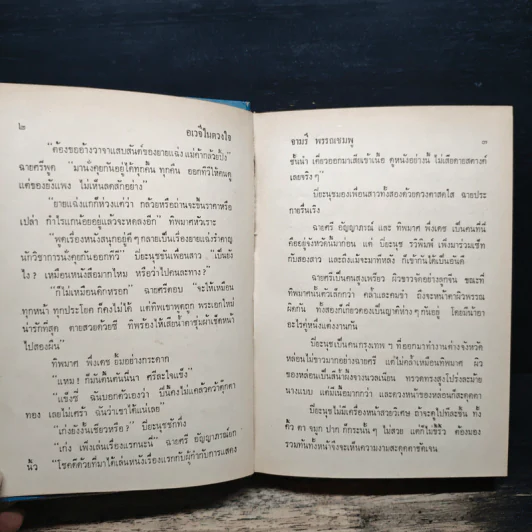 ๒
อเวจีในดวงใจ
"ต้องขออ้างวาจาแสบสันต์ของยายแฉ่ง แม่ค้ากล้วยปิ้ง"
ฉายศรีพูด "มานั่งคุยกันอยู่ได้ทุกคืน ทุกคืน ออกทีวีให้คนดู
แต่ของยังแพง ไม่เห็นลดสักอย่าง"
"ยายแฉ่งแกก็ห่วงแต่ว่า กล้วยหรือถ่านจะขึ้นราคาหรือ
เปล่า กำไรแกน้อยอยู่แล้วจะหดลงอีก" ทิพมาศหัวเราะ
"พูดเรื่องหนังสนุกอยู่ดี ๆ กลายเป็นเรื่องยายแฉ่งรำคาญ
นักวิชาการนั่งคุยกันออกทีวี" ปิยะนุชขัดเพื่อนสาว เป็นยัง
ไง? เหมือนหนังสือมากไหม หรือว่าไปคนละทาง?
"ก็ไม่เหมือนดักหรอก" ฉายศรีตอบ "จะให้เหมือน
ทุกหน้า ทุกประโยค ก็คงไม่ได้ แต่ทิพเขาพูดถูก พระเอกใหม่
น่ารักที่สุด
ไปสองผืน"
ทิพมาศ พึ่งเดช ยิ้มอย่างกระดาก
"แหม! ก็มันตื้นตันนี่นา ศรีละใจแข็ง"
"เก่งยังงั้นเชียวหรือ?" ปิยะนุชซักยิ้ม
"เก่ง เพิ่งเล่นเรื่องแรกนะนี่" ฉายศรี อัญญาภรณ์ยก
นิ้ว "โชคดีด้วยที่มาได้เล่นหนังเรื่องแรกกับผู้กำกับการแสดง
อาษรี พรรณชมพู
๓
ชั้นนำ เดี๋ยวออกมาเสียเข้าเนื้อ ดูหนังอย่างนี้ ไม่เสียดายสตางค์
เลยจริง ๆ"
ปิยะนุชมองเพื่อนสาวทั้งสองด้วยดวงตาสดใส ฉายประ
กายรื่นเริง
ฉายศรี อัญญาภรณ์ และ ทิพมาศ พึ่งเดช เป็นคนที่นี่
คือยอยู่จังหวัดนี้มาก่อน แต่ ปิยะนุช วิวัฒพงษ์ เพิ่งมาร่วมเช็ท
กับสองสาว และถึงแม้จะมาทีหลัง ก็เข้ากันได้เป็นอันดี
ฉายศรีเป็นคนสูงเพรียว ผิวขาวจัดอย่างลูกจีน ขณะที่
ทิพมาศนั้นตัวเล็กกว่า คล้ำและคมขำ ถึงจะหน้าตาผิวพรรณ
ผิดกัน ทั้งสองก็เกี่ยวดองเป็นญาติห่าง ๆ กันอยู่ โดยมีน้าอา
อะไรคู่หนึ่งแต่งงานกัน
ปิยะนุชเป็นคนกรุงเทพ ฯ ที่ออกมาทำงานต่างจังหวัด
หล่อนไม่ขาวมากอย่างฉายศรี แต่ไม่คล้ำเหมือนทิพมาศ ผิว
ของหล่อนเป็นสีน้ำผึ้งจางนวลเนียน ทรวดทรงสูงโปร่งละม้าย
นางแบบ แต่มีเนื้อมากกว่า และดวงหน้าของหล่อนก็สะดุดตา
ปิยะนุชไม่มีเครื่องหน้าสวยวิเศษ ถ้าจะดูไปทีละชิ้น ทั้ง
คิ้ว ตา จมูก ปาก ก็กระนั้น ๆ ไม่สวย แต่ก็ไม่ขี้ริ้ว ต้องมอง
รวมกันทั้งหน้าจึงจะเห็นความงามสะดุดตาชัดเจน